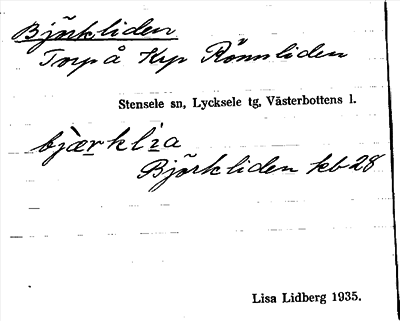 Björkliden
Torp å Krp Rönnliden
Stensele sn, Lycksele tg, Västerbottens l.
bjærklia
Björkliden kb 28
Lisa Lidberg 1935.